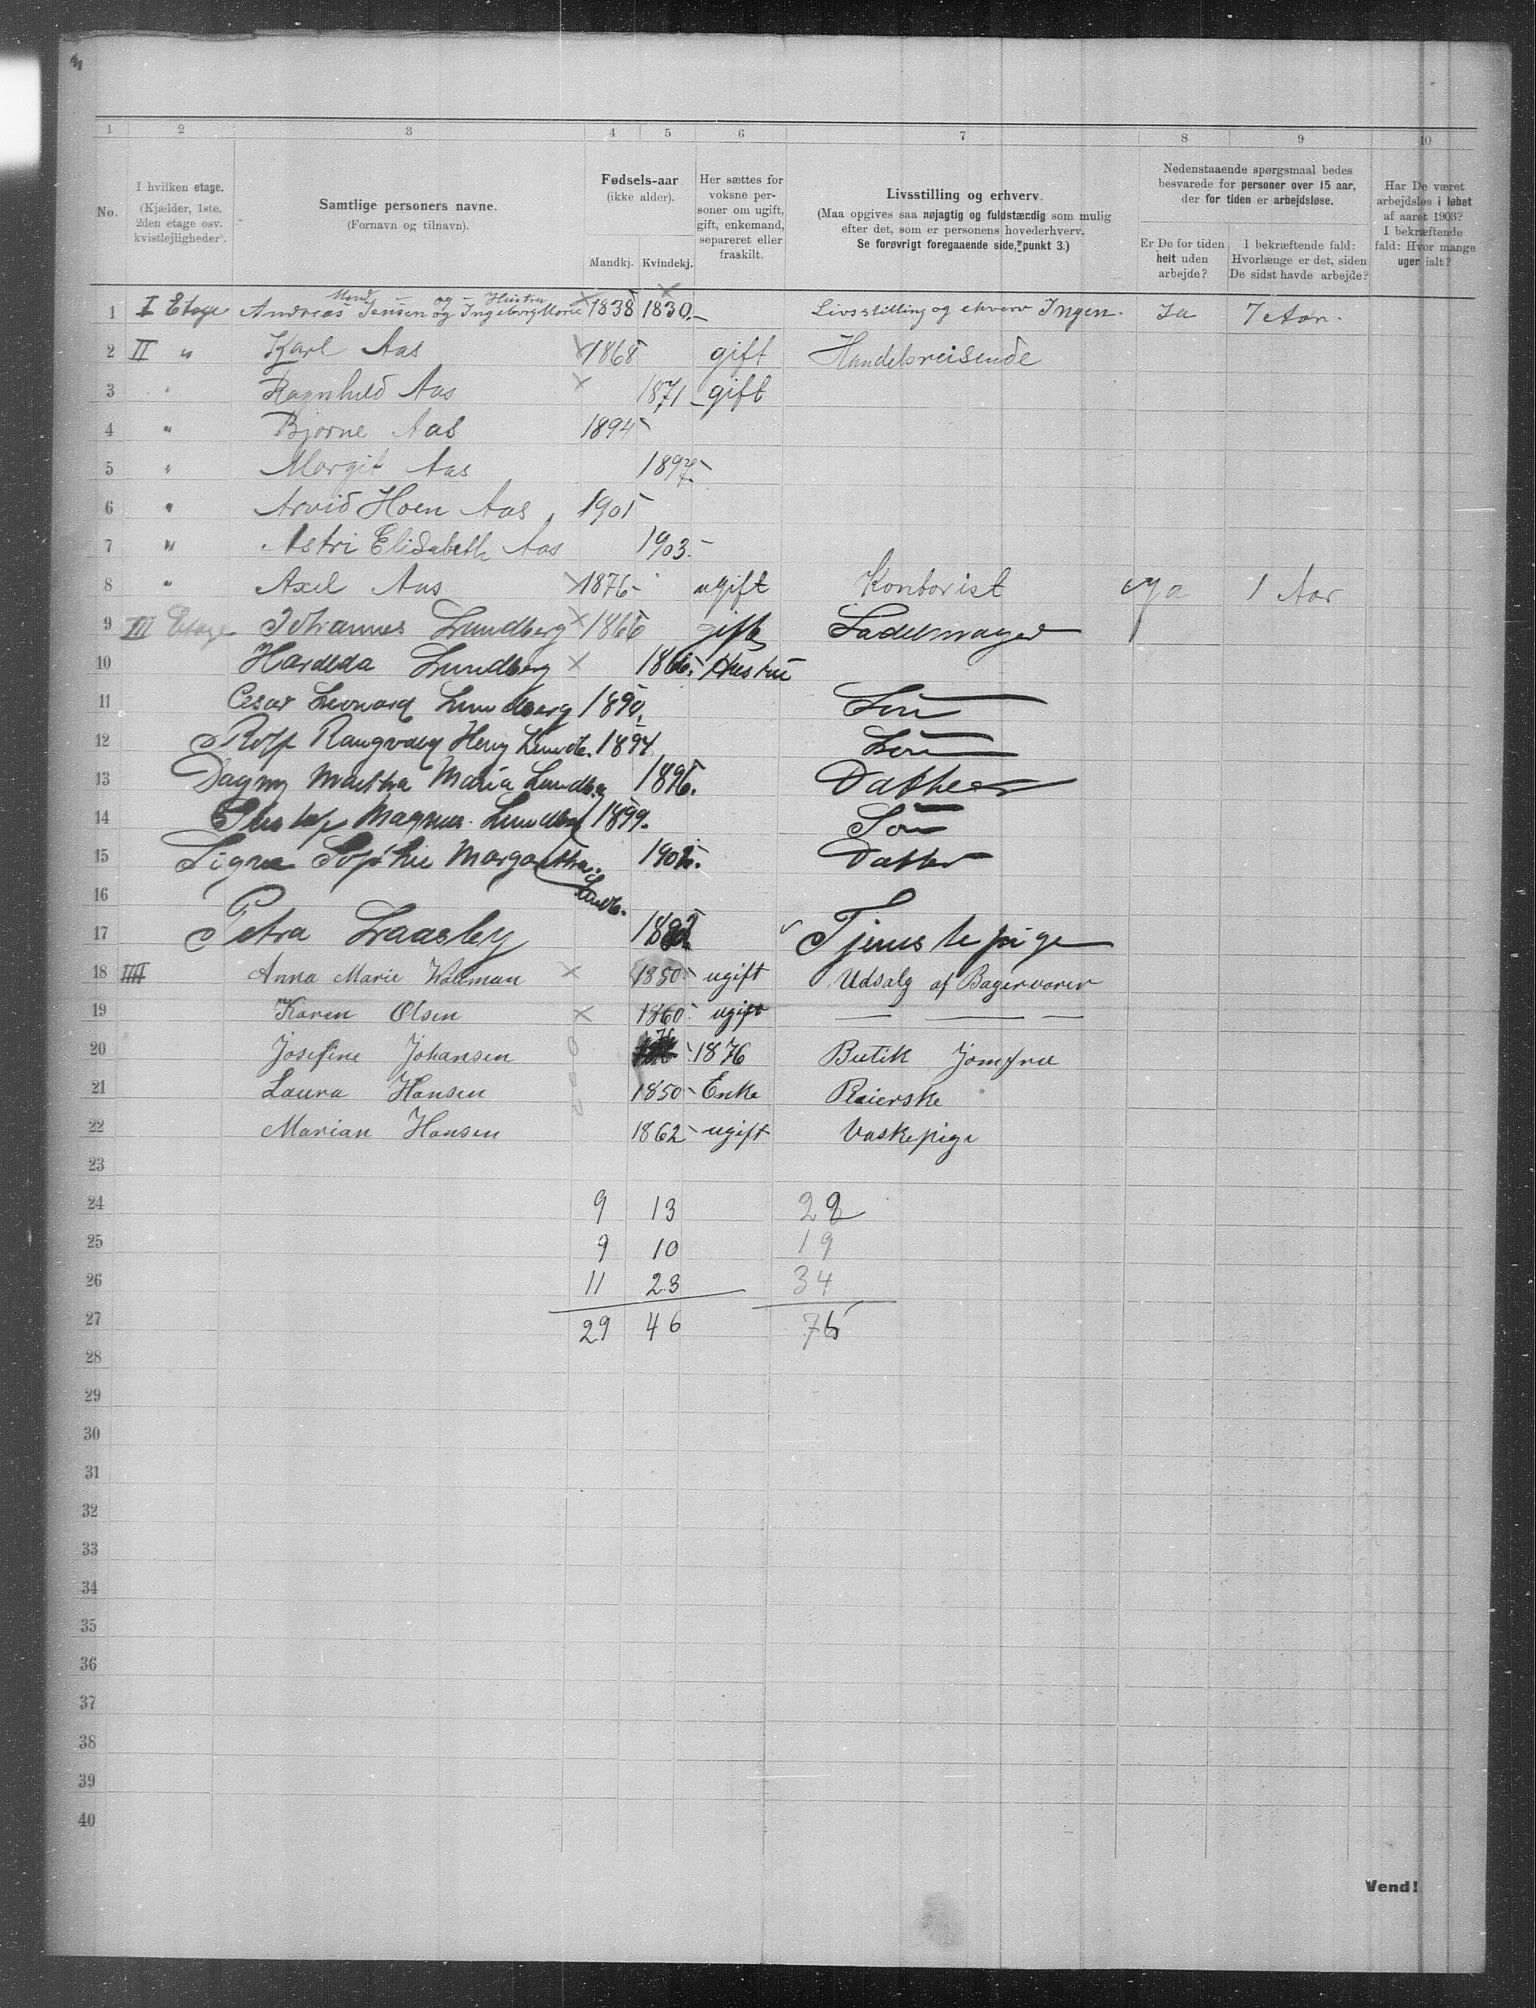 1 2 3 4 5 6 7 8 9 10
No.
I hvilken etage.
(Kjælder, 1ste.
2den etage osv.
kvistlejligheder).
Samtlige personers navne.
(Fornavn og tilnavn).
Fødsels-aar
(ikke alder).
Mandkj. Kvindekj.
Her sættes for
voksne per-
soner om ugift,
gift, enkemand,
separeret eller
fraskilt.
Livsstilling og erhverv.
(Maa opgives saa nøjagtig og fuldstændig som mulig
efter det, som er personens hovederhverv.
Se forøvrigt foregaaende side, punkt 3.)
Nedenstaaende spørgsmaal bedes
besvarede for personer over 15 aar,
der for tiden er arbejdsløse.
Er De for tiden
helt uden
arbejde?
I bekræftende fald:
Hvorlænge er det, siden
De sidst havde arbejde?
Har De været
arbejdsløs i løbet
af aaret 1903?
I bekræftende
fald: Hvor mange
uger ialt?
Mand og Hustru
1 I Etage Andreas Jensen og Ingeborg Marie × 1838 × 1830. Livsstilling og ehverv Ingen. Ja 7 Aar.
2 II " Karl Aas × 1868 gift Handelsreisende
3 " Ragnhild Aas × 1871 gift
4 " Bjarne Aas 1894
5 " Margit Aas 1897
6 " Arvid Hoen Aas 1901
7 " Astri Elisabeth Aas 1903.
8 " Axel Aas × 1876 ugift Kontorist Ja 1 Aar
9 III Etage Johannes Lundberg × 1866 gift Sadelmager
10 Lundberg × 1866. Hustru
11 Cesar Leonard Lundberg 1890. Søn
12 Rolf Rangvald Henry Lundb. 1894 Søn
13 Dagny Martha Maria Lundbg 1896. Datter
14 Gustaf Magnus Lundbg 1899. Søn
15 Signe Sophie Margaretha Datter
16 Lundb.
17 Petra Laasby Tjenestepige
18 IIII Anna Marie × 1850 ugift Udsalg af Bagervarer
19 Karen Olsen × 1860 ugift — — —
20 Josefine Johansen 0 1876 Butik Jomfru
21 Laura Hansen 0 1850 Enke Pleierske
22 Marian Hansen 1862 ugift Vaskepige
23
24 9 13 22
25 9 10 19
26 11 23 34
27 29 46 75
28
29
30
31
32
33
34
35
36
37
38
39
40
Vend!